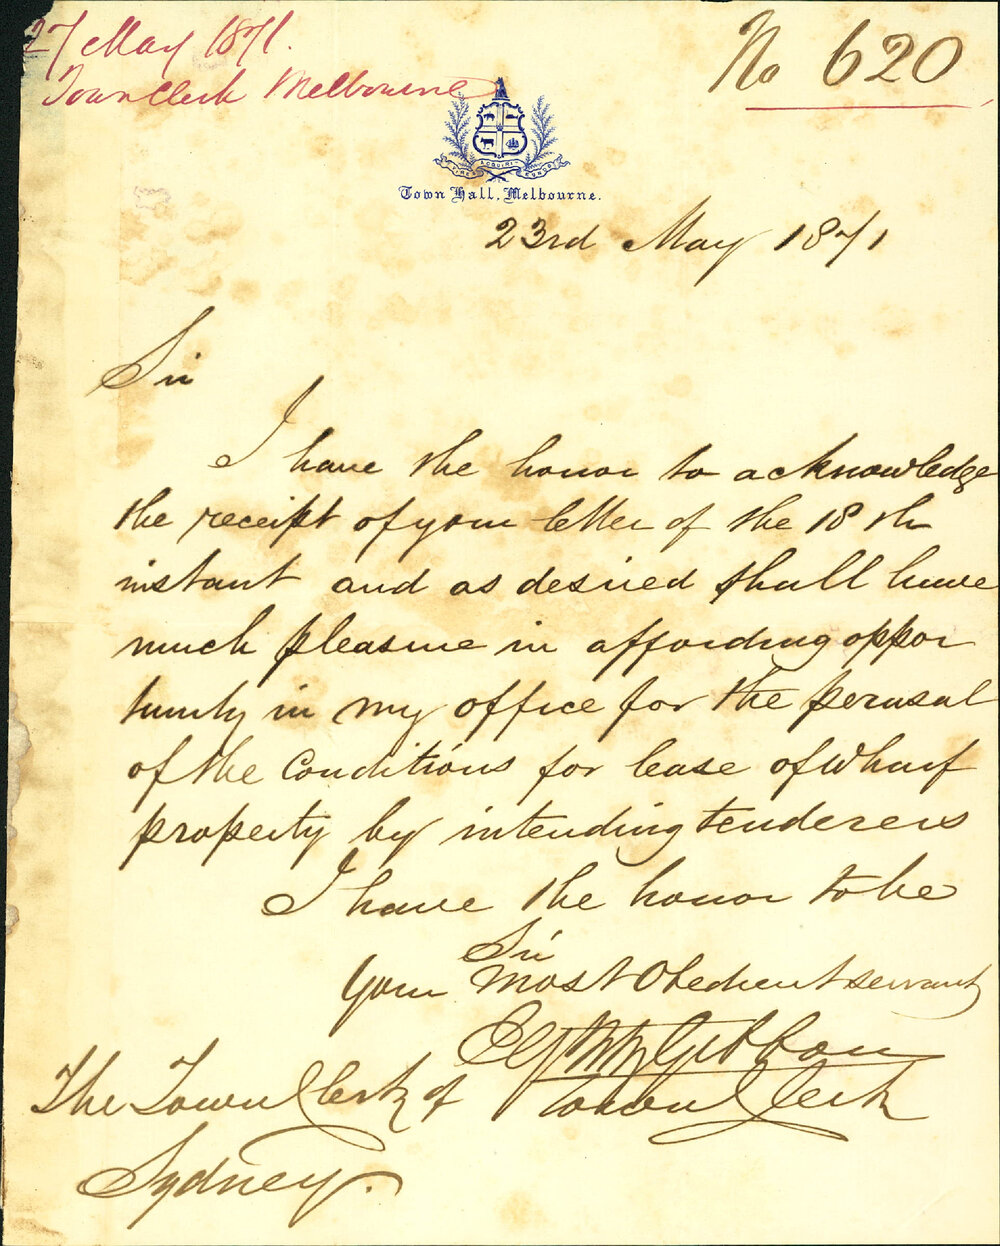 27 May 1871.
Town Clerk Melbourne
No 620
ACQUIRIT
VIRES EUNDO
Town Hall, Melbourne.
23rd May 1871
Sir
I have the honor to acknowledge
the receipt of your letter of the 18th
instant and as desired shall have
much pleasure in affording oppor
tunity in my office for the perusal
of the Conditions for lease of Wharf
property by intending tenderers
I have the honor to be
Sir
Your most Obedient servant
Fitz Gibbon
Town Clerk
The Town Clerk of
Sydney.